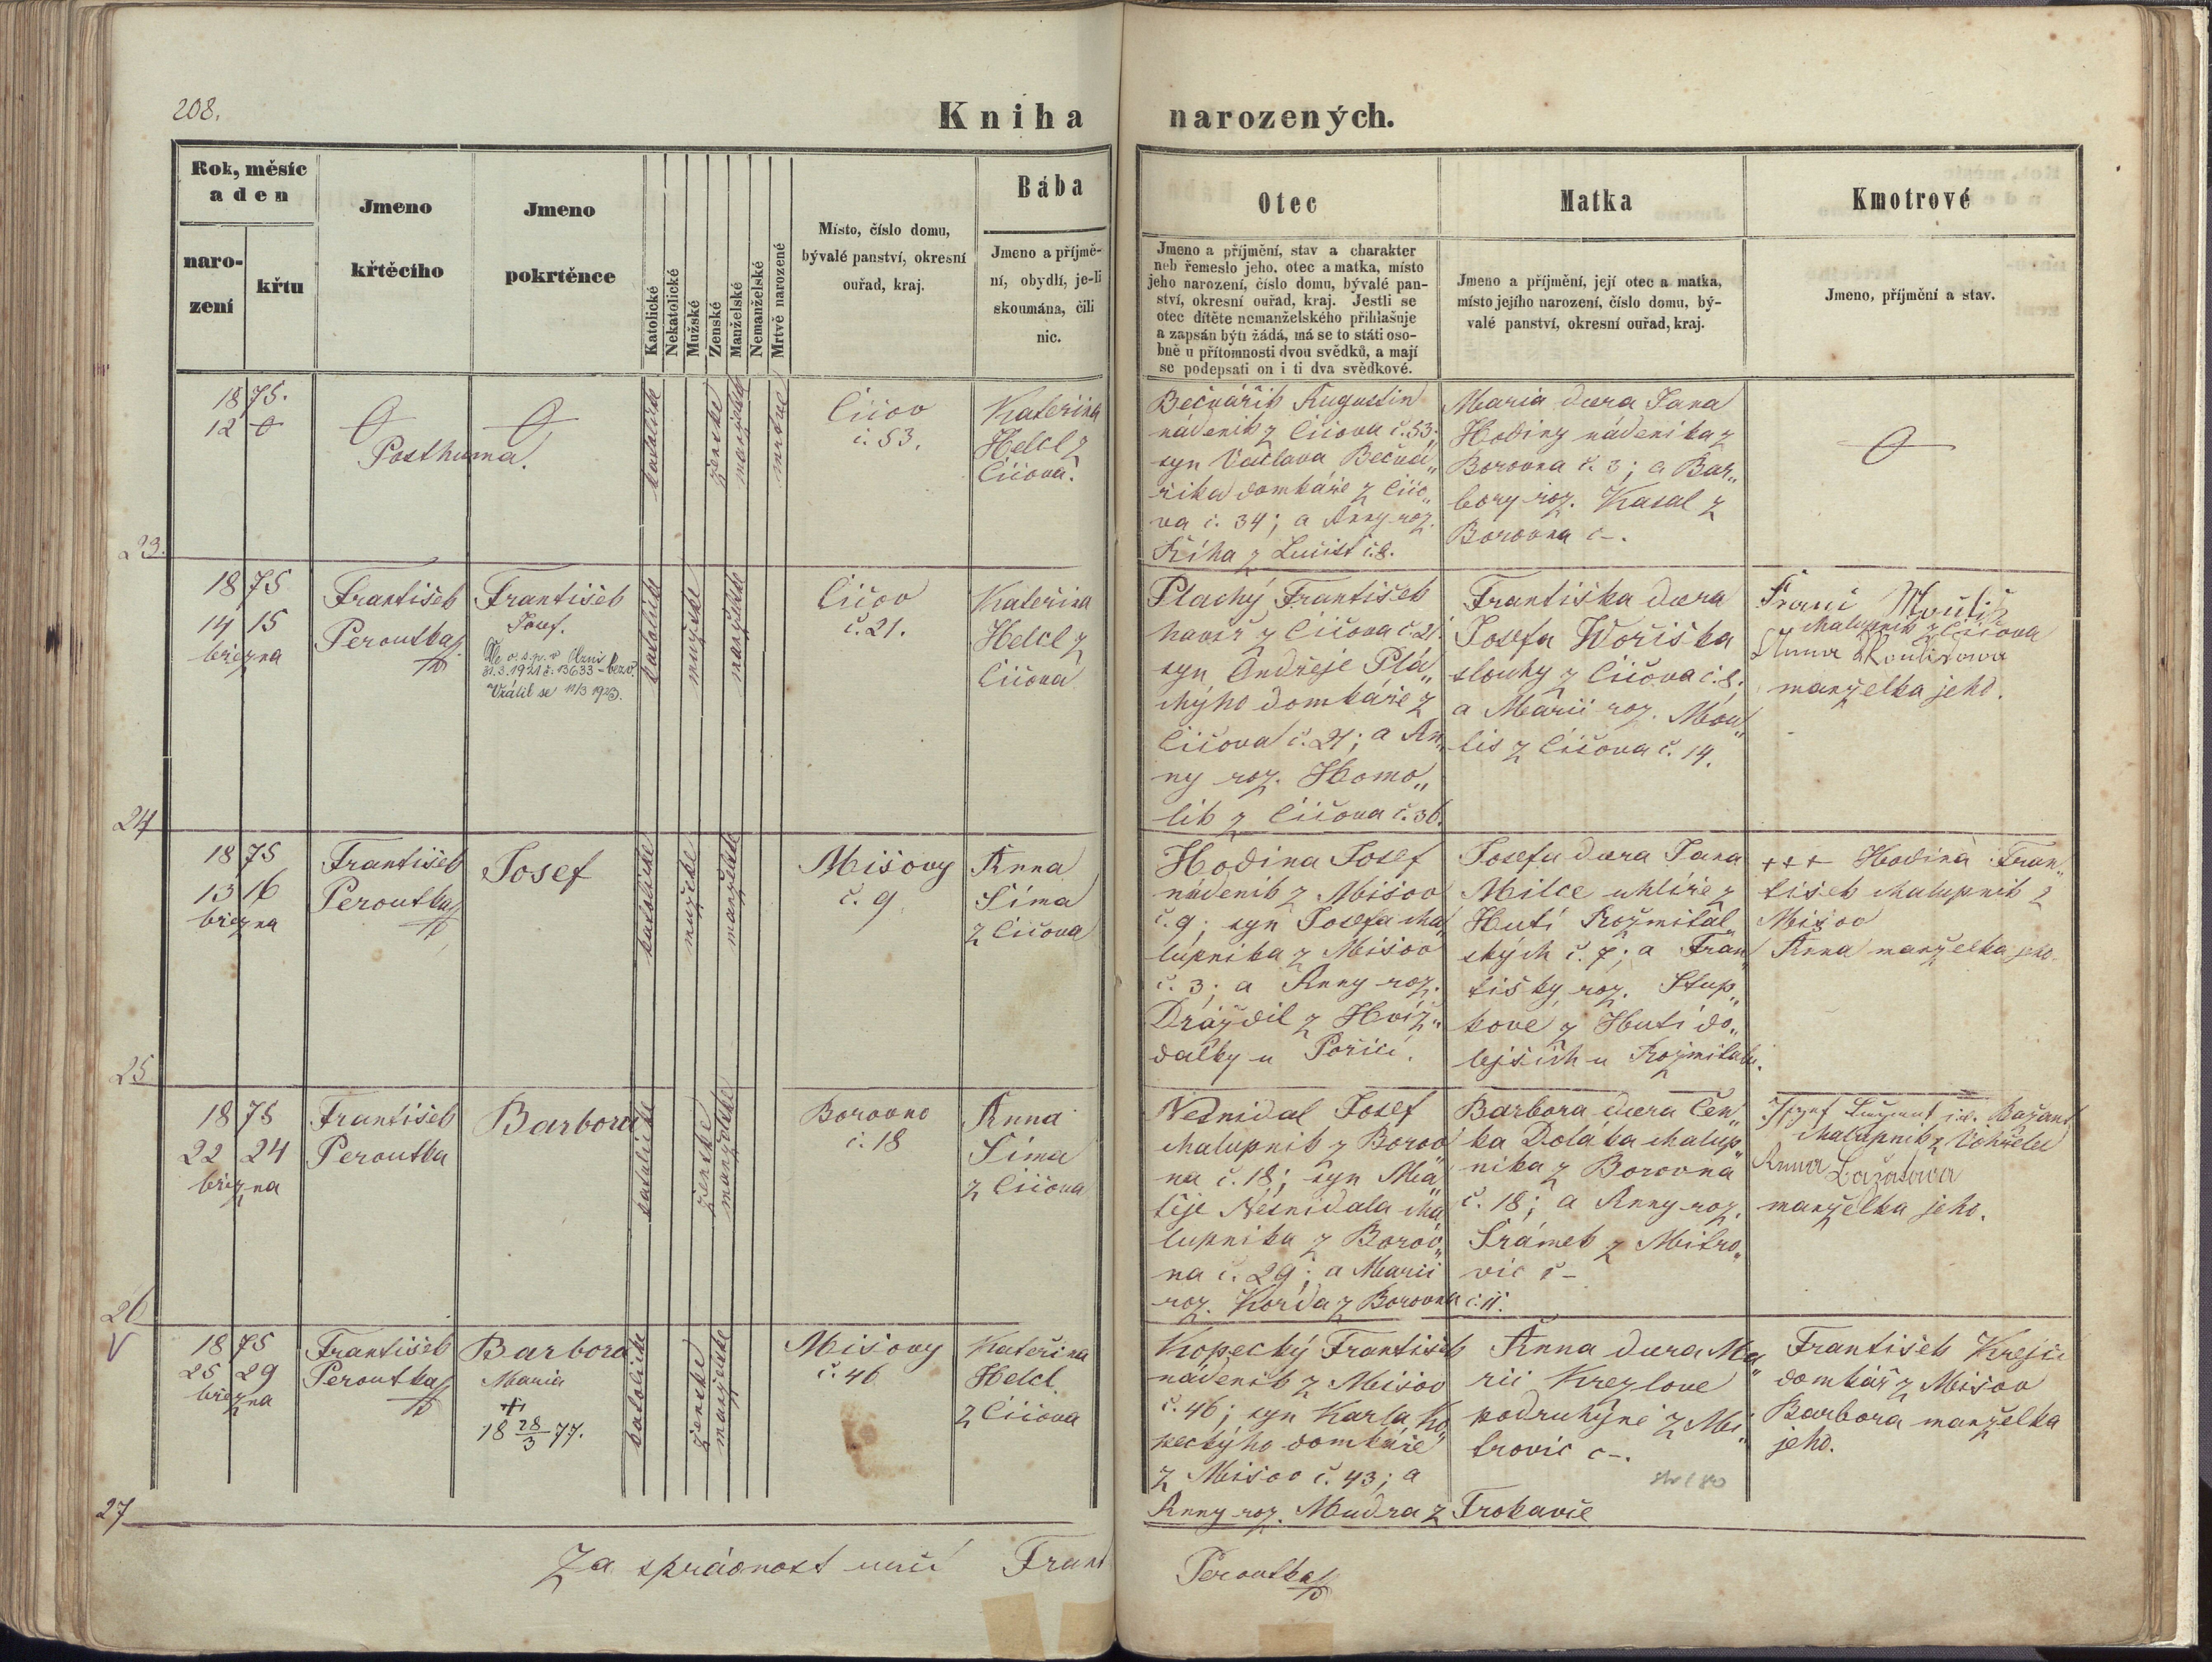 208.
Kniha narozených.
Rok, měsíc
a den
naro-
zení
křtu
Jmeno
křtěcího
Jmeno
pokrtěnce
Katolické
Nekatolické
Mužské
Ženské
Manželské
Nemanželské
Mrtvě narozené
Místo, číslo domu,
bývalé panství, okresní
ouřad, kraj.
Bába
Jmeno a příjmě-
ní, obydlí, je-li
skoumána, čili
nic.
Otec
Jmeno a příjmění, stav a charakter
neb řemeslo jeho, otec a matka, místo
jeho narození, číslo domu, bývalé pan-
ství, okresní ouřad, kraj. Jestli se
otec dítěte nemanželského přihlašuje
a zapsán býti žádá, má se to státi oso-
bně u přítomnosti dvou svědků, a mají
se podepsati on i ti dva svědkové.
Matka
Jmeno a příjmění, její otec a matka,
místo jejího narození, číslo domu, bý-
valé panství, okresní ouřad, kraj.
Kmotrové
Jmeno, příjmění a stav.
1875.
12
Posthuma.
katolické
ženské
manželské
mrtvé
Číčov
č. 53.
Kateřina
Helcl z
Číčova.
Bečvářík Augustin
nádeník z Číčova č. 53;
syn Václava Bečvá„
říka domkáře z Číčo„
va č. 34; a Anny roz.
Říha z Lučišť č. 8.
Maria dcera Jana
Hodiny nádeníka z
Borovna č. 3; a Bar„
bory roz. Kasal z
Borovna č –.
23.
1875
14 15
března
František
Peroutka
František
Josef.
Vrátil se 11/3 1923.
katolické
mužské
manželské
Číčov
č. 21.
Kateřina
Helcl z
Číčova
Plachý František
havíř z Číčova č. 21
syn Ondřeje Pla„
chýho domkáře z
Číčova č. 21; a An„
ny roz. Homo„
lik z Číčova č. 36.
Františka dcera
Josefa Woříška
slouhy z Číčova č. 8;
a Marii roz. Mou„
lis z Číčova č. 14.
Franc Moulis
chalupník z Číčova
Anna Moulisova
manželka jeho.
24
1875
13 16
března
František
Peroutka
Josef
katolické
mužské
manželské
Míšovy
č. 9
Anna
Šíma
z Číčova
Hodina Josef
nádeník z Míšov
č. 9; syn Josefa cha„
lupníka z Míšov
č. 3; a Anny roz.
Drážďil z Hvíž„
dalky u Poříčí.
Josefa dcera Jana
Milce uhlíře z
Hutí Rožmitál„
ských č. 7; a Fran„
tišky roz. Stup„
kove z Hutí do„
lejších u Rožmitálu.
+++ Hodina Fran„
tišek chalupník z
Míšov
Anna manželka jeho.
25
1875
22 24
března
František
Peroutka
Barbora
katolické
ženské
manželské
Borovno
č. 18
Anna
Šíma
z Číčova
Nesnídal Josef
chalupník z Borov„
na č. 18; syn Ma„
těje Nesnídala cha„
lupníka z Borov„
na č. 29; a Marii
roz. Korda z Borovna č. 11.
Barbora dcera Čen„
ka Doláka chalup„
níka z Borovna
č. 18; a Anny roz.
Šrámek z Mitro„
vic č –
Anna
manželka jeho.
26
1875
25 29
března
František
Peroutka
Barbora
Maria
18 28/3 77.
katolické
ženské
manželské
Míšovy
č. 46
Kateřina
Helcl
z Číčova
Kopecký František
nádeník z Míšov
č. 46; syn Karla Ko„
peckýho domkáře
z Míšov č. 43; a
Anny roz. Mudra z Trokavče
Anna dcera Ma„
rii Krezlove
podruhyně z Mi„
trovic č –.
František Krejčí
domkář z Míšov
Barbora manželka
jeho.
27
Za správnost ručí Frant
Peroutka